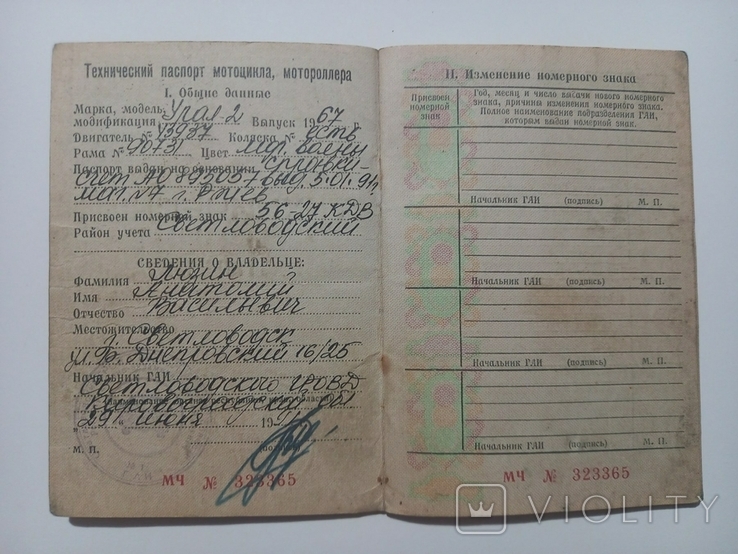 Технический паспорт мотоцикла, мотороллера
I. Общие данные
Марка, модель,
модификация Урал-2 Выпуск 1967 г.
Двигатель № 43927 Коляска есть
Рама № 90731 Цвет
Паспорт выдан на основании справки-
счет АО 893057 выд. 5.01.91г.
маг. №7 г.
Присвоен номерной знак 56-27 КДВ
Район учета Светловодский
СВЕДЕНИЯ О ВЛАДЕЛЬЦЕ:
Фамилия
Имя Анатолий
Отчество Васильевич
Местожительство
г. Светловодск
Днепровский 16/25
Начальник ГАИ
Светловодского ГРОВД
Кировоградской обл
„29" июня 19
М. П.
МЧ № 323365
II. Изменение номерного знака
Присвоен номерной знак
Год, месяц и число выдачи нового номерного
знака, причины изменения номерного знака.
Полное наименование подразделения ГАИ,
которым выдан номерной знак.
Начальник ГАИ (подпись) М. П.
Начальник ГАИ (подпись) М. П.
Начальник ГАИ (подпись) М. П.
Начальник ГАИ (подпись) М. П.
МЧ № 323365
VIOLITY